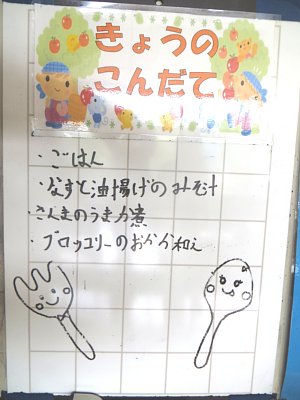 きょうの
こんだて
・ごはん
・なすと油揚げのみそ汁
・さんまのうまか煮
・ブロッコリーのおかか和え